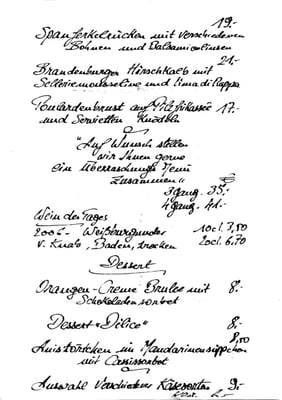 19.-
Spanferkelrücken mit verschiedenen
Bohnen und Balsamicolinsen
21.-
Brandenburger Hirschkalb mit
Selleriemousseline und Cima di Rappa
Poulardenbrust auf Pilzfrikassée 17.-
und Servietten Knödel
"Auf Wunsch stellen
wir Ihnen gerne
ein Überraschungs Menü
zusammen"
3 gang. 35.-
4 gang. 41.-
Wein des Tages
2006- Weißburgunder 10cl. 3,50
v. Knab, Baden, trocken 20cl. 6,70
Dessert
Orangen-Creme Brulee mit 8.-
Schokoladensorbet
Dessert "Délice" 8.-
8,50
Anistörtchen im Mandarinensüppchen
mit Cassissorbet
Auswahl verschiedener Käsesorten 9.-